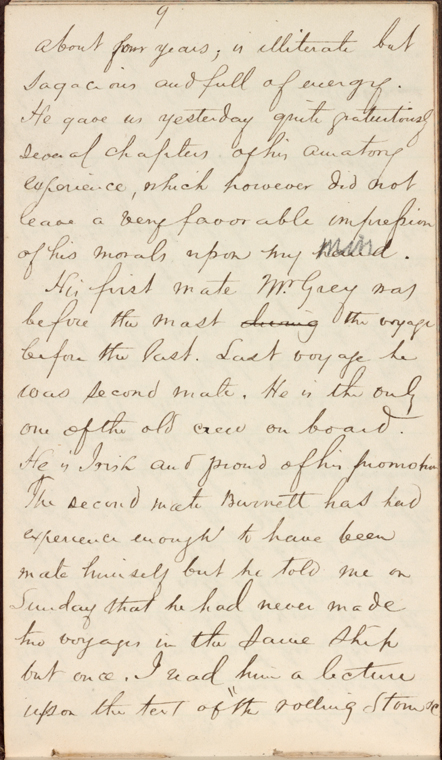 9
about four years; is illiterate but
sagacious and full of energy.
He gave us yesterday quite gratuitously
several chapters of his amatory
experience, which however did not
leave a very favorable impression
of his morals upon my mind.
His first mate Mr. Grey was
before the mast during the voyage
before the last. Last voyage he
was second mate. He is the only
one of the old crew on board.
He is Irish and proud of his promotion
The second mate Burnett has had
experience enough to have been
mate himself but he told me on
Sunday that he had never made
two voyages in the same ship
but once. I read him a lecture
upon the text of "the rolling Stone